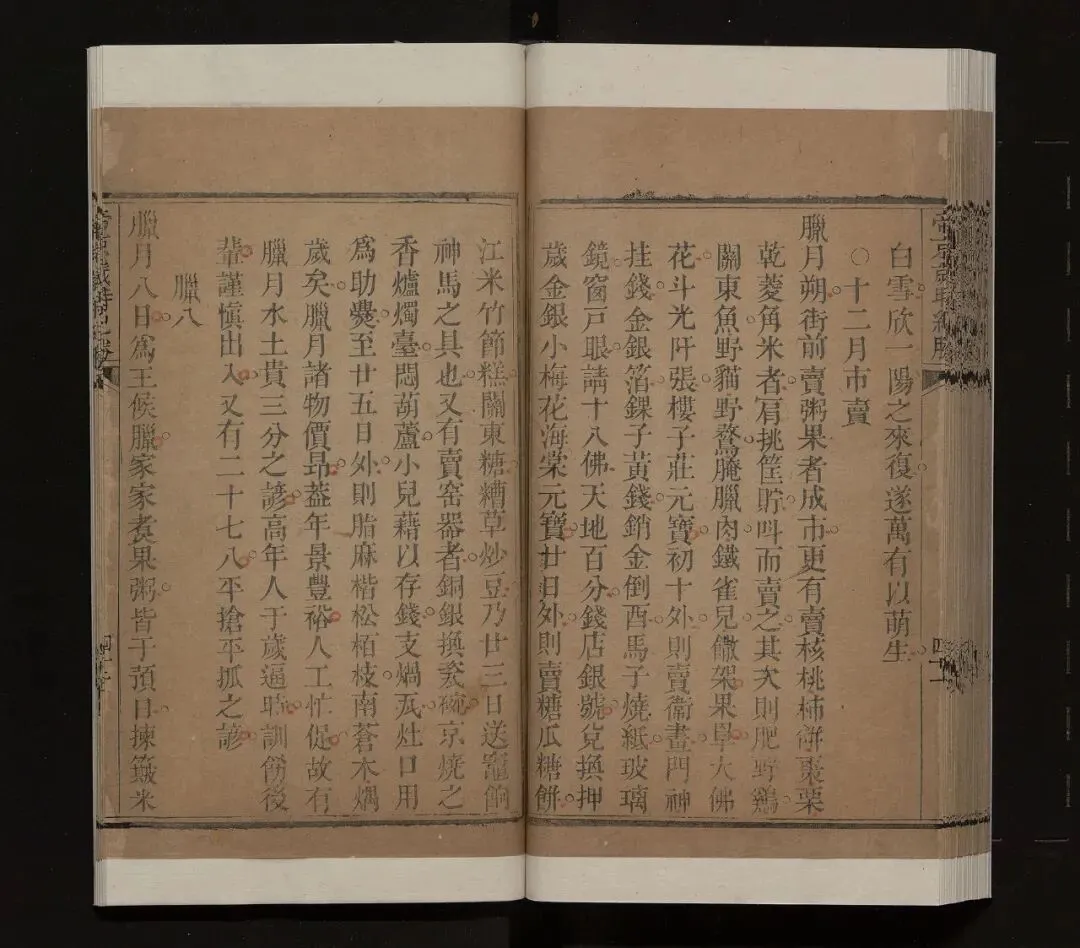 白雪欣一陽之來復遂萬有以萌生
○十二月市賣
臘月朔街前賣粥果者成市更有賣核桃柿餅棗栗
乾菱角米者肩挑筐貯呌而賣之其次則肥野鷄
關東魚野貓野鶩腌臘肉鐵雀兒饊架果旦大佛
花斗光阡張樓子莊元寶初十外則賣衞畫門神
挂錢金銀箔錁子黃錢銷金倒酉馬子燒紙玻璃
鏡窗戶眼請十八佛天地百分錢店銀號兌換押
歲金銀小梅花海棠元寶廿日外則賣糖瓜糖餅
江米竹節糕關東糖糟草炒豆乃廿三日送竈餉
神馬之具也又有賣窑器者銅銀換瓷碗京燒之
香爐燭臺悶葫蘆小兒藉以存錢支鍋瓦灶口用
爲助爨至廿五日外則脂麻楷松栢枝南蒼术燒
歲矣臘月諸物價昂葢年景豐裕人工忙促故有
臘月水土貴三分之諺高年人于歲逼時訓飭後
輩謹愼出入又有二十七八平搶平抓之諺
臘八
臘月八日爲王侯臘家家煑果粥皆于預日揀簸米
帝京歲時紀勝
四十二